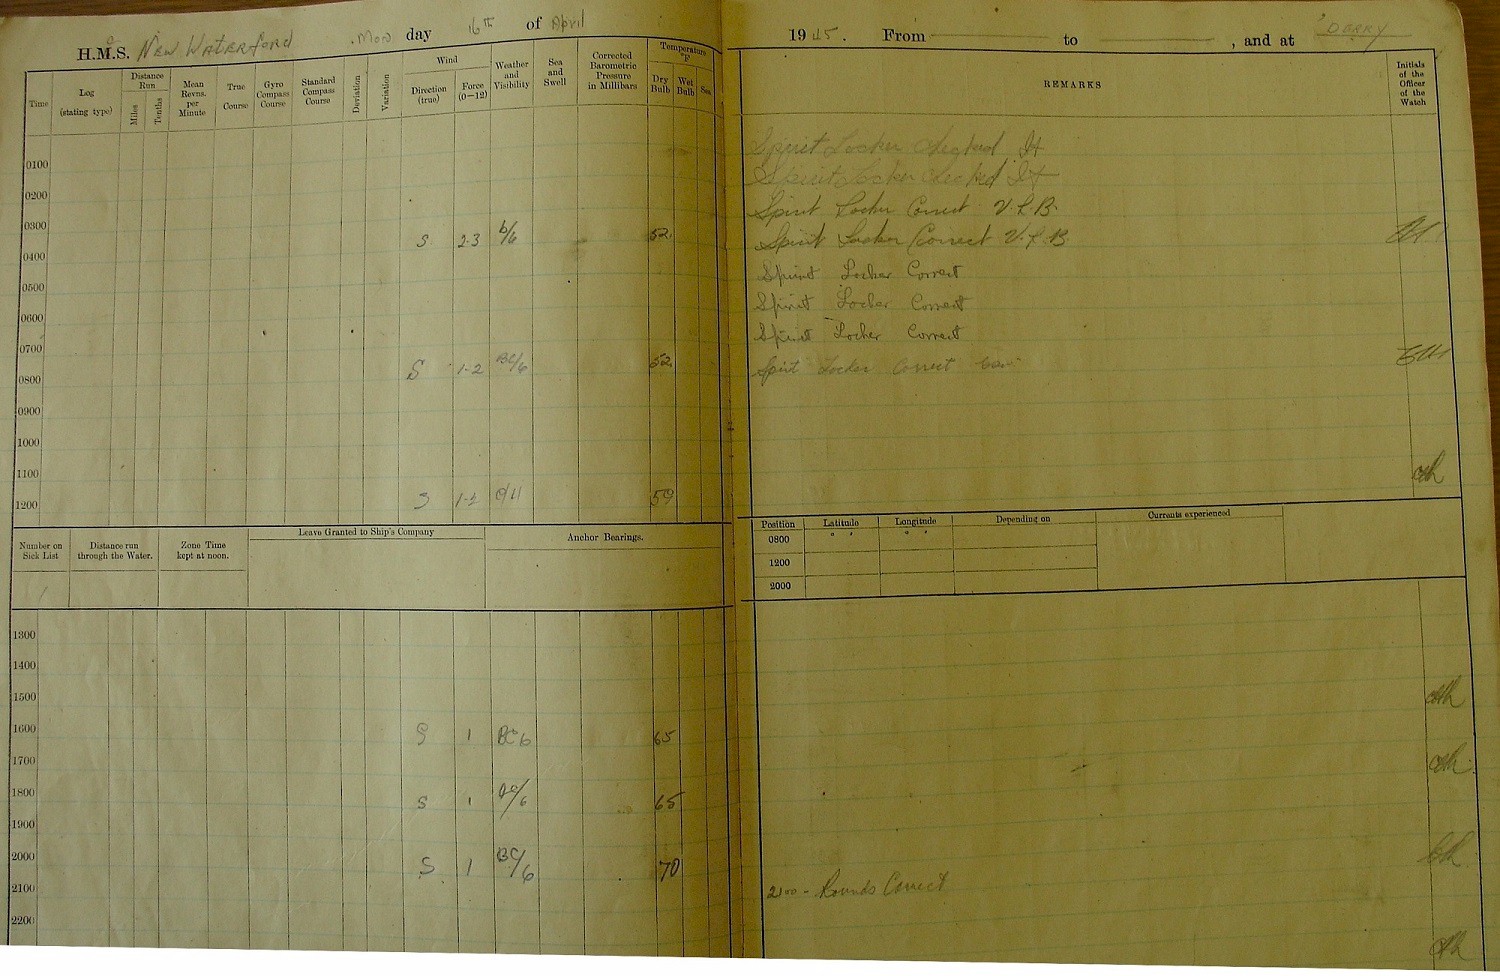 H.M.S. NEW WATERFORD Mon day 16th of April 1945. From to , and at 'DERRY
Time
Log (stating type)
Distance Run
Miles
Tenths
Mean Revns. per Minute
True Course
Gyro Compass Course
Standard Compass Course
Deviation
Variation
Wind
Direction (true)
Force (0–12)
Weather and Visibility
Sea and Swell
Corrected Barometric Pressure in Millibars
Temperature °F
Dry Bulb
Wet Bulb
Sea
REMARKS
Initials of the Officer of the Watch
0100 Spirit Locker Checked
0200 Spirit Locker Checked
0300 Spirit Locker Correct V.L.B.
0400 S 2-3 b/6 52 Spirit Locker Correct V.L.B.
0500 Spirit Locker Correct
0600 Spirit Locker Correct
0700 Spirit Locker Correct
0800 S 1-2 BC/6 52 Spirit Locker Correct
0900
1000
1100
1200 S 1-2 59
Number on Sick List
Distance run through the Water.
Zone Time kept at noon.
Leave Granted to Ship's Company
Anchor Bearings.
Position Latitude Longitude Depending on Currents experienced
0800 ° ′ ° ′
1200
2000
1300
1400
1500
1600 S 1 BC 6 65
1700
1800 S 1 BC/6 65
1900
2000 S 1 BC/6 70
2100 2100 - Rounds Correct
2200